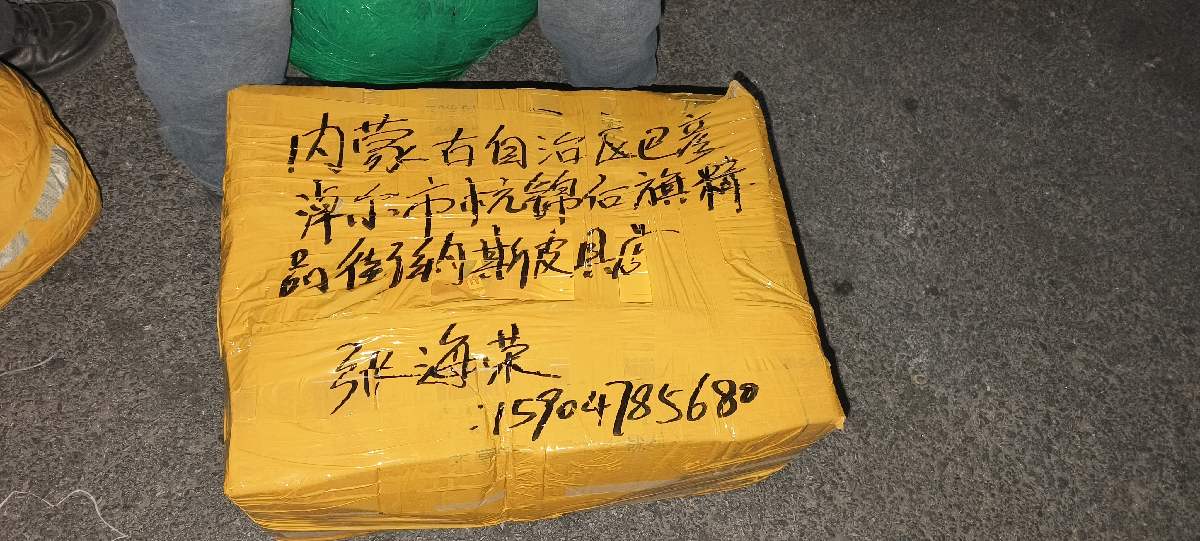 内蒙古自治区巴彦
淖尔市杭锦后旗精
品街纳斯皮具店
张海荣
:15904785680